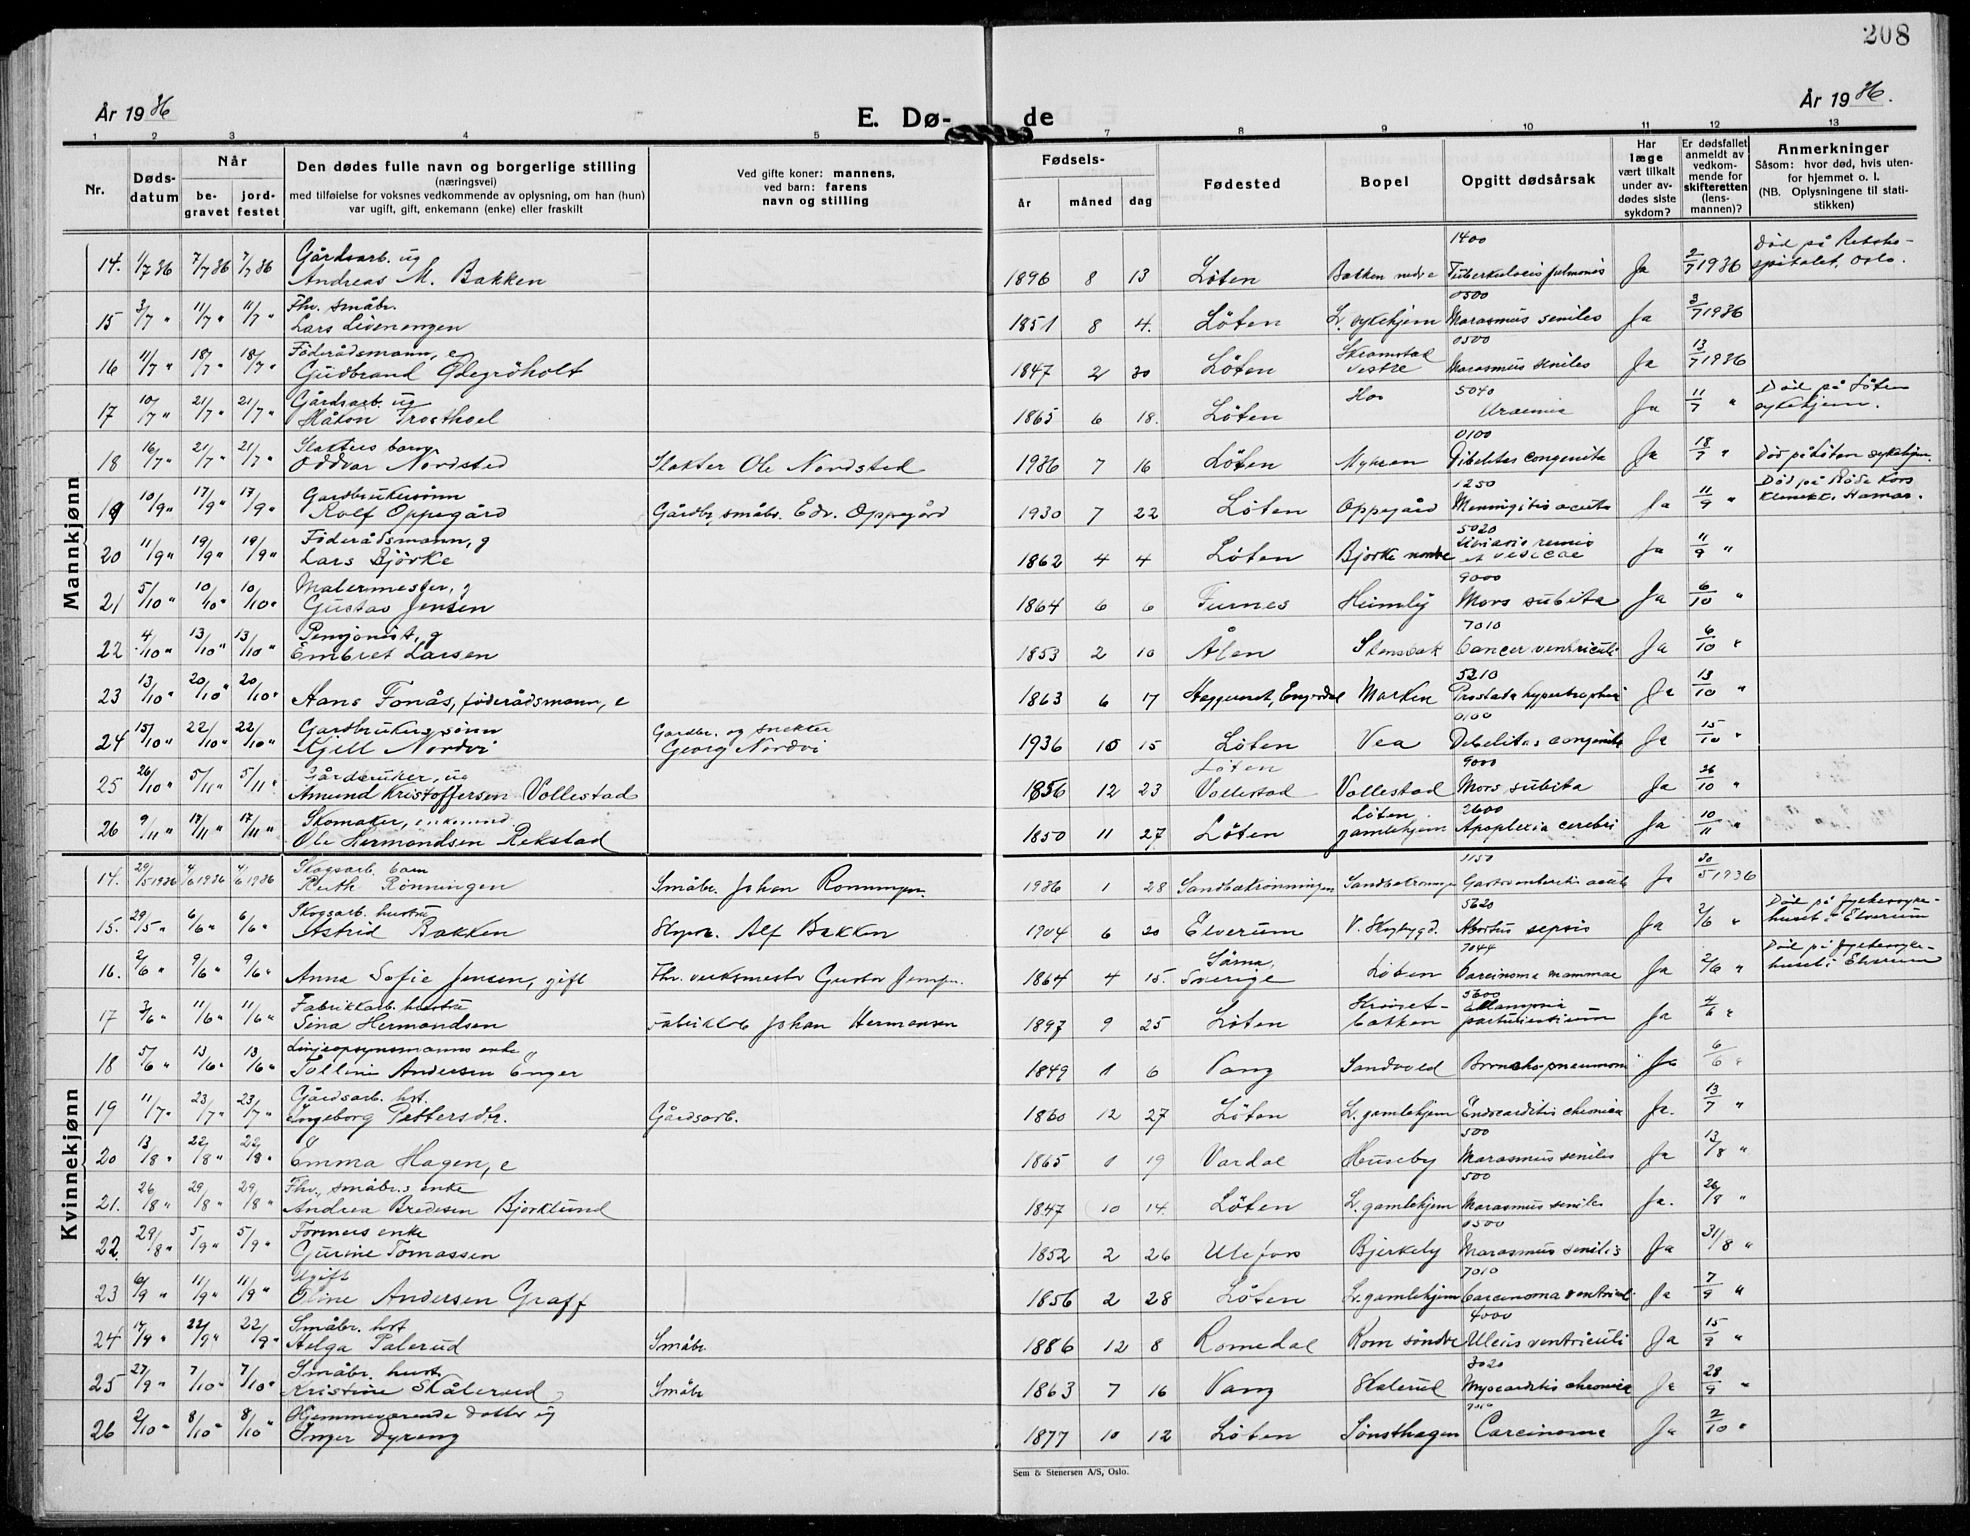 208
År 1936
E. Dø-
de
År 1936.
1 2 3 4 5 7 8 9 10 11 12 13
Nr.
Døds-
datum
Når
be-
gravet
jord-
festet
Den dødes fulle navn og borgerlige stilling
(næringsvei)
med tilføielse for voksnes vedkommende av oplysning, om han (hun)
var ugift, gift, enkemann (enke) eller fraskilt
Ved gifte koner: mannens,
ved barn: farens
navn og stilling
Fødsels-
år måned dag
Fødested
Bopel
Opgitt dødsårsak
Har
læge
vært tilkalt
under av-
dødes siste
sykdom?
Er dødsfallet
anmeldt av
vedkom-
mende for
skifteretten
(lens-
mannen)?
Anmerkninger
Såsom: hvor død, hvis uten-
for hjemmet o. l.
(NB. Oplysningene til stati-
stikken)
Mannkjønn
Gårdsarb. ug 1400 Død på Riksho-
14. 1/7 36 7/7 36 7/7 36 Andreas M. Bakken 1896 8 13 Löten Bakken nedre Tuberkulosis pulmonis Ja 2/7 1936 spitalet, Oslo.
Fhv. småbr. 0500
15 3/7 " 11/7 " 11/7 " Lars Livenengen 1851 8 4. Löten L. sykehjem Marasmus seniles Ja 3/7 1936
Föderådsmann, e Skramstad 0500
16 11/7 " 18/7 " 18/7 " Gudbrand Ödegröholt 1847 2 20 Löten Vestre Marasmus seniles Ja 13/7 1936
Gårdsarb. ug Hoo 5040 Död på Löten
17 10/7 " 21/7 " 21/7 " Håkon Frosthoel 1865 6 18. Löten Uraemia Ja 11/7 " sykehjem.
Slakters barn 0100
18 16/7 " 21/7 " 21/7 " Oddvar Nordsted Slakter Ole Nordsted 1936 7 16 Löten Myhren Dibelitas congenita Ja 18/7 " Död på Löten sykehjem.
Gardbrukersønn 1250 Død på Röde Kors
19 10/9 " 17/9 " 17/9 " Rolf Oppegård Gårdbr, småbr. Edv. Oppegård 1930 7 22 Löten Oppegård Meningitis acuta Ja 11/9 " Klinekk, Hamar.
Föderådsmann, g 5020
20 11/9 " 19/9 " 19/9 " Lars Björke 1862 4 4 Löten Björke nordre et vesicae Ja 11/9 "
Malermester, g 9000
21 5/10 " 10/10 " 10/10 " Gustav Jensen 1864 6 6 Furnes Heimly Mors subita Ja 6/10 "
Pensjonist, g 7010
22 4/10 " 13/10 " 13/10 " Embret Larsen 1853 2 10 Ålen Stensbak Cancer ventriculi Ja 6/10 "
5210
23 13/10 " 20/10 " 20/10 " Hans Fonås, föderådsmann, e 1863 6 17 Heggeriset, Engerdal Marken Prostata hypertrophia Ja 13/10 "
Gardbrukers sønn Gardbr. og snekker 0100
24 15/10 " 22/10 " 22/10 " Kjell Nordvi Georg Nordvi 1936 10 15 Löten Vea Debelitas congenita Ja 15/10 "
Gårdbruker, ug Löten 9000
25 26/10 " 5/11 " 5/11 " Amund Kristoffersen Vollestad 1856 12 23 Vollestad Vollestad Mors subita Ja 26/10 "
Skomaker, enkemand Löten. 2600
26 9/11 " 17/11 " 17/11 " Ole Hermandsen Rekstad 1850 11 27 Löten gamlehjem Apoplexia cerebri Ja 10/11 "
Kvinnekjønn
Skogsarb. barn 1150
14. 29/5 1936 4/6 1936 4/6 1936 Ruth Rönningen Småbr. Johan Rönningen. 1936 1 28 Sandbakrönningen Sandbakröningen Gastroenteritis acuta Ja 30/5 1936
Skogsarb. hustru 5620 Död på fylkessyke-
15. 29/5 " 6/6 " 6/6 " Astrid Bakken Alf Bakken 1904 6 20 Elverum V. Skogbygd. Abortus sepsis Ja 2/6 " huset i Elverum
Särna, 7044 Död på fylkessyke-
16. 2/6 " 9/6 " 9/6 " Anna Sofie Jensen, gift Fhv. verksmester Gustav Jensen. 1864 4 15. Sverige Löten Carcinoma mammae Ja 2/6 " huset i Elverum
Fabrikkarb. hustru Kroiset- 5600 Eklampsia
17 3/6 " 11/6 " 11/6 " Sina Hermandsen Fabrikkarb Johan Hermansen 1897 9 25 Löten bakken parturientium Ja 4/6 "
Linjeopsynsmanns enke
18 5/6 " 13/6 " 13/6 " Tolline Andersen Enger 1849 1 6 Vang Sandvold Bronchopneumoni Ja 6/6 "
Gårdsarb. hst.
19 11/7 " 23/7 " 23/7 " Ingeborg Pettersdtr. Gårdsarb. 1860 12 27 Löten L. gamlehjem Endocarditis chronica Ja. 13/7 "
500
20 13/8 " 22/8 " 22/8 " Emma Hagen, e 1865 1 19 Vardal Huseby Marasmus seniles Ja 13/8 "
Fhv. småbr.s enke 500
21. 26/8 " 29/8 " 29/8 " Andrea Bredesen Bjorklund 1847 10 14. Löten L. gamlehjem Marasmus seniles Ja. 26/8 "
Formers enke 0500
22. 29/8 " 5/9 " 5/9 " Gurine Tomassen 1852 2 26 Ulefoss Bjerkely Marasmus senilis Ja 31/8 "
Ugift 7010
23 6/9 " 11/9 " 11/9 " Oline Andersen Graff 1856 2 28 Löten L. gamlehjem Carcinoma ventriculi Ja 7/9 "
Småbr. hst 4000
24 14/9 " 22/9 " 22/9 " Helga Palerud Småbr 1886 12 8 Romedal Rom søndre Ulcus ventriculi Ja 15/9 "
Småbr. hust. 3020
25 27/9 " 7/10 " 7/10 " Kristine Skålerud Småbr 1863 7 16 Vang Skalerud Myocarditis chronica Ja 28/9 "
Hjemmeværende datter ug
26 2/10 " 8/10 " 8/10 " Inger Dyreng 1877 10 12 Löten Sønsthagen Carcinoma Ja 2/10 "
Sem & Stenersen A/S, Oslo.